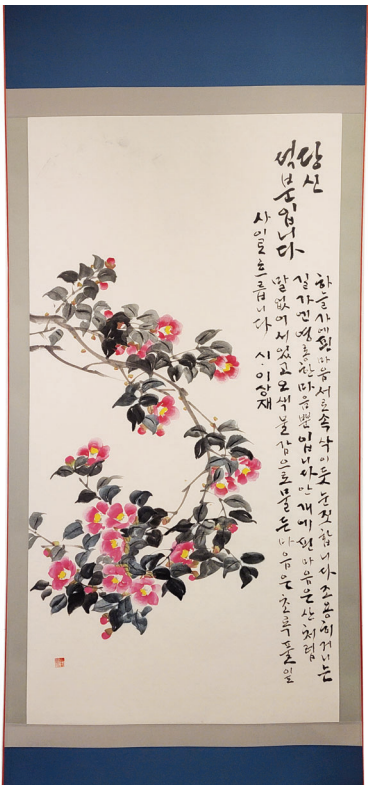 당신
덕분입니다
하늘가에 핀 마음 서로 속삭이듯 눈짓합니다 조용히 거니는
길가엔 영롱한 마음뿐입니다 안개에 핀 마음은 산처럼
말없이 서있고 오색 물감으로 물든 마음은 초록 풀잎
사이로 흐릅니다 시·이상재